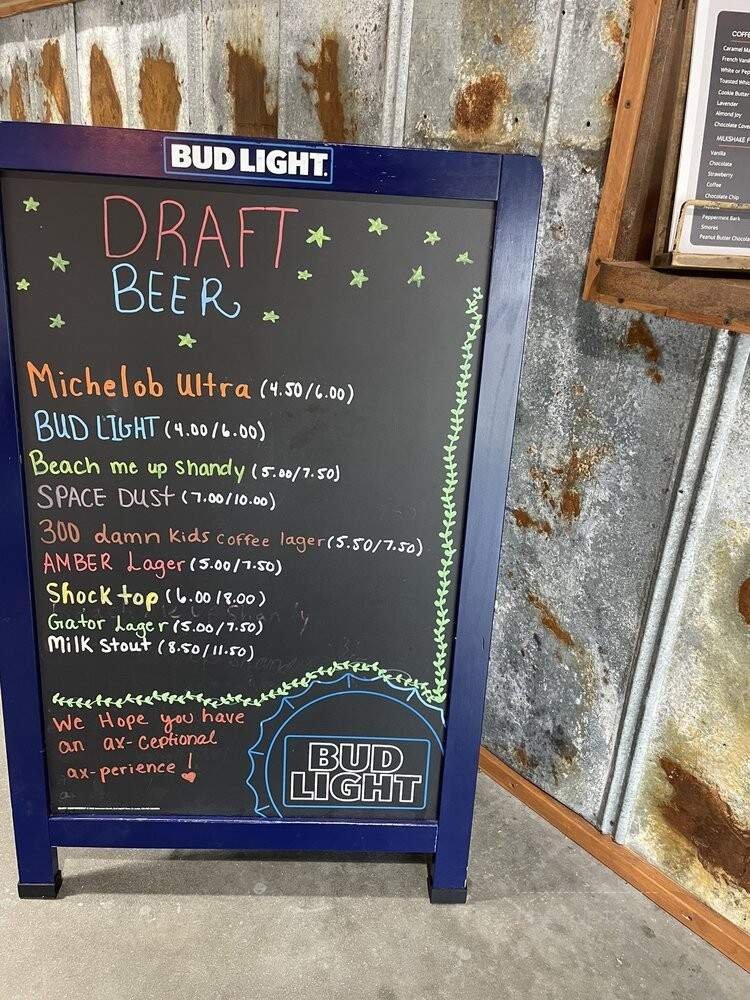 BUD LIGHT.
DRAFT
BEER
Michelob Ultra (4.50/6.00)
BUD LIGHT (4.00/6.00)
Beach me up shandy (5.00/7.50)
SPACE DUST (7.00/10.00)
300 damn kids coffee lager (5.50/7.50)
AMBER Lager (5.00/7.50)
Shock top (6.00/8.00)
Gator Lager (5.00/7.50)
Milk stout (8.50/11.50)
We Hope you have
an ax-ceptional
ax-perience!
BUD
LIGHT
COFFE
Caramel Ma
French Vanil
White or Pep
Toasted Whi
Cookie Butter
Lavender
Almond Joy
Chocolate Cove
MILKSHAKE F
Vanilla
Chocolate
Strawberry
Coffee
Chocolate Chip
Peppermint Bark
Smores
Peanut Butter Chocola